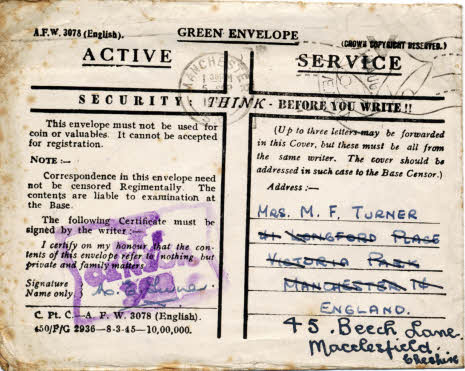 A.F.W. 3078 (English).
GREEN ENVELOPE
(CROWN COPYRIGHT RESERVED.)
ACTIVE
SERVICE
MANCHESTER
SECURITY: THINK - BEFORE YOU WRITE!!
This envelope must not be used for
coin or valuables. It cannot be accepted
for registration.
NOTE :—
Correspondence in this envelope need
not be censored Regimentally. The
contents are liable to examination at
the Base.
The following Certificate must be
signed by the writer:—
I certify on my honour that the con-
tents of this envelope refer to nothing but
private and family matters.
Signature
Name only
C. Pt. C.—A. F. W. 3078 (English).
450/P/G 2936—8-3-45—10,00,000.
(Up to three letters may be forwarded
in this Cover, but these must be all from
the same writer. The cover should be
addressed in such case to the Base Censor.)
Address :—
MRS. M. F. TURNER
41 LONGFORD PLACE
VICTORIA PARK
MANCHESTER 14
ENGLAND.
45. Beech Lane.
Macclesfield.
Cheshire